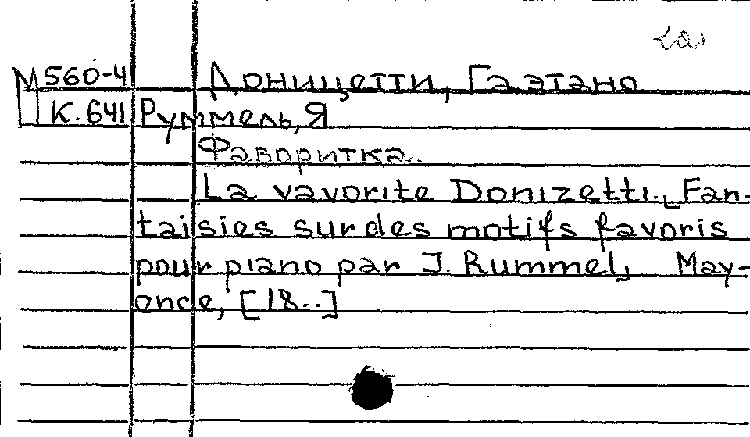 М560-4 Доницетти, Гаэтано
К.641 Руммель, Я
Фаворитка.
La vavorite Donizetti. Fan-
taisies sur des motifs favoris
pour piano par J. Rummel, May-
ence, [18..]